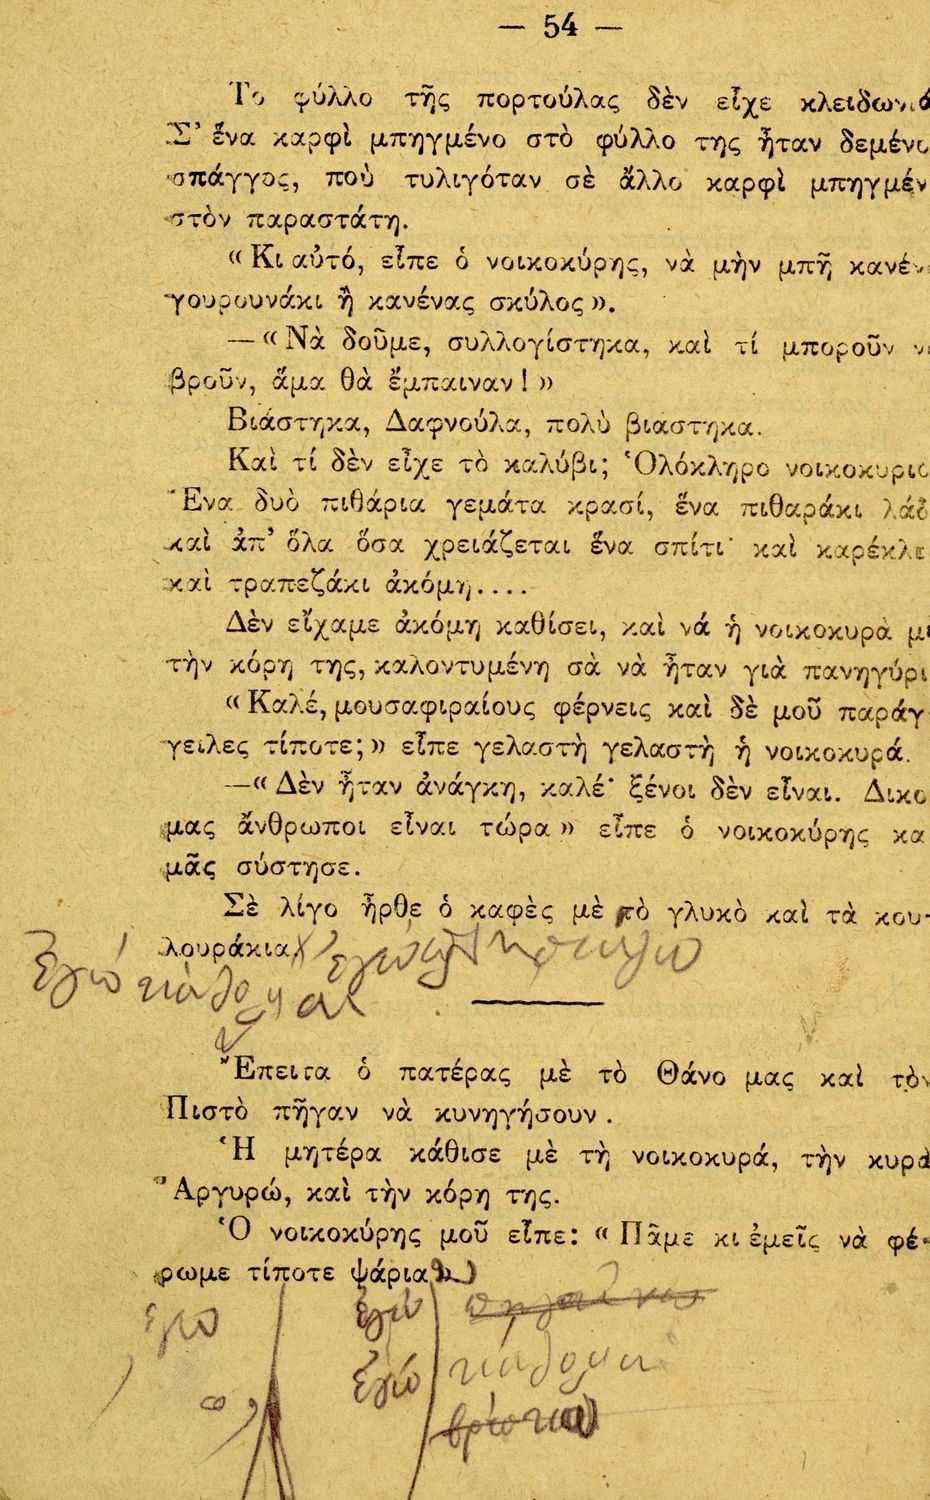 — 54 —
Το φύλλο τῆς πορτούλας δὲν εἶχε κλειδωνιά
Σ' ἕνα καρφὶ μπηγμένο στὸ φύλλο της ἦταν δεμένο
σπάγγος, ποὺ τυλιγόταν σὲ ἄλλο καρφὶ μπηγμέν
στὸν παραστάτη.
«Κι αὐτό, εἶπε ὁ νοικοκύρης, νὰ μὴν μπῇ κανέν
γουρουνάκι ἢ κανένας σκύλος».
—«Νὰ δοῦμε, συλλογίστηκα, καὶ τί μποροῦν ν
βροῦν, ἅμα θὰ ἔμπαιναν!»
Βιάστηκα, Δαφνούλα, πολὺ βιάστηκα.
Καὶ τί δὲν εἶχε τὸ καλύβι; Ὁλόκληρο νοικοκυριο
Ἕνα δυὸ πιθάρια γεμάτα κρασί, ἕνα πιθαράκι λάδ
καὶ ἀπ' ὅλα ὅσα χρειάζεται ἕνα σπίτι· καὶ καρέκλε
καὶ τραπεζάκι ἀκόμη....
Δὲν εἴχαμε ἀκόμη καθίσει, καὶ νά ἡ νοικοκυρὰ μὲ
τὴν κόρη της, καλοντυμένη σὰ νὰ ἦταν γιὰ πανηγύρι
«Καλέ, μουσαφιραίους φέρνεις καὶ δὲ μοῦ παράγ-
γειλες τίποτε;» εἶπε γελαστὴ γελαστὴ ἡ νοικοκυρά.
—«Δὲν ἦταν ἀνάγκη, καλέ· ξένοι δὲν εἶναι. Δικο
μας ἄνθρωποι εἶναι τώρα» εἶπε ὁ νοικοκύρης κα
μᾶς σύστησε.
Σὲ λίγο ἦρθε ὁ καφὲς μὲ τὸ γλυκὸ καὶ τὰ κου-
λουράκια.
Ἐγώ κάθομαι ἐγώ
Ἔπειτα ὁ πατέρας μὲ τὸ Θάνο μας καὶ τὸν
Πιστὸ πῆγαν νὰ κυνηγήσουν.
Ἡ μητέρα κάθισε μὲ τὴ νοικοκυρά, τὴν κυρὰ
Ἀργυρώ, καὶ τὴν κόρη της.
Ὁ νοικοκύρης μοῦ εἶπε: «Πᾶμε κι ἐμεῖς νὰ φέ-
ρωμε τίποτε ψάρια»
ἐγω ἐγώ πηγαίνω
ἐγώ κάθομαι
βρίσκω